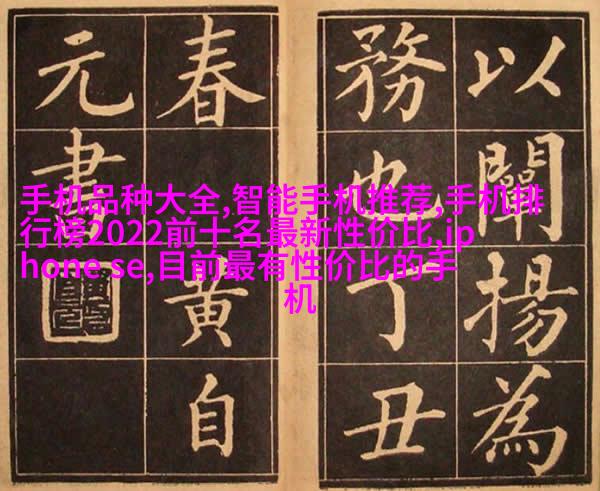 以聞揚為
務也丁丑
春黄自
元書
手机品种大全,智能手机推荐,手机排
行榜2022前十名最新性价比,ip
hone se,目前最有性价比的手
机